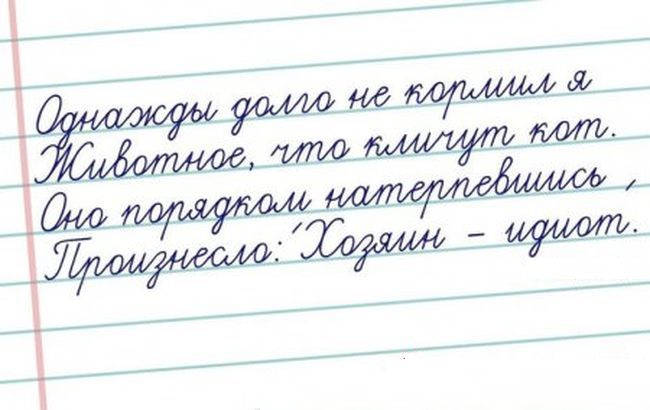 Однажды долго не кормил я
Животное, что кличут кот.
Оно порядком натерпевшись,
Произнесло: "Хозяин - идиот".